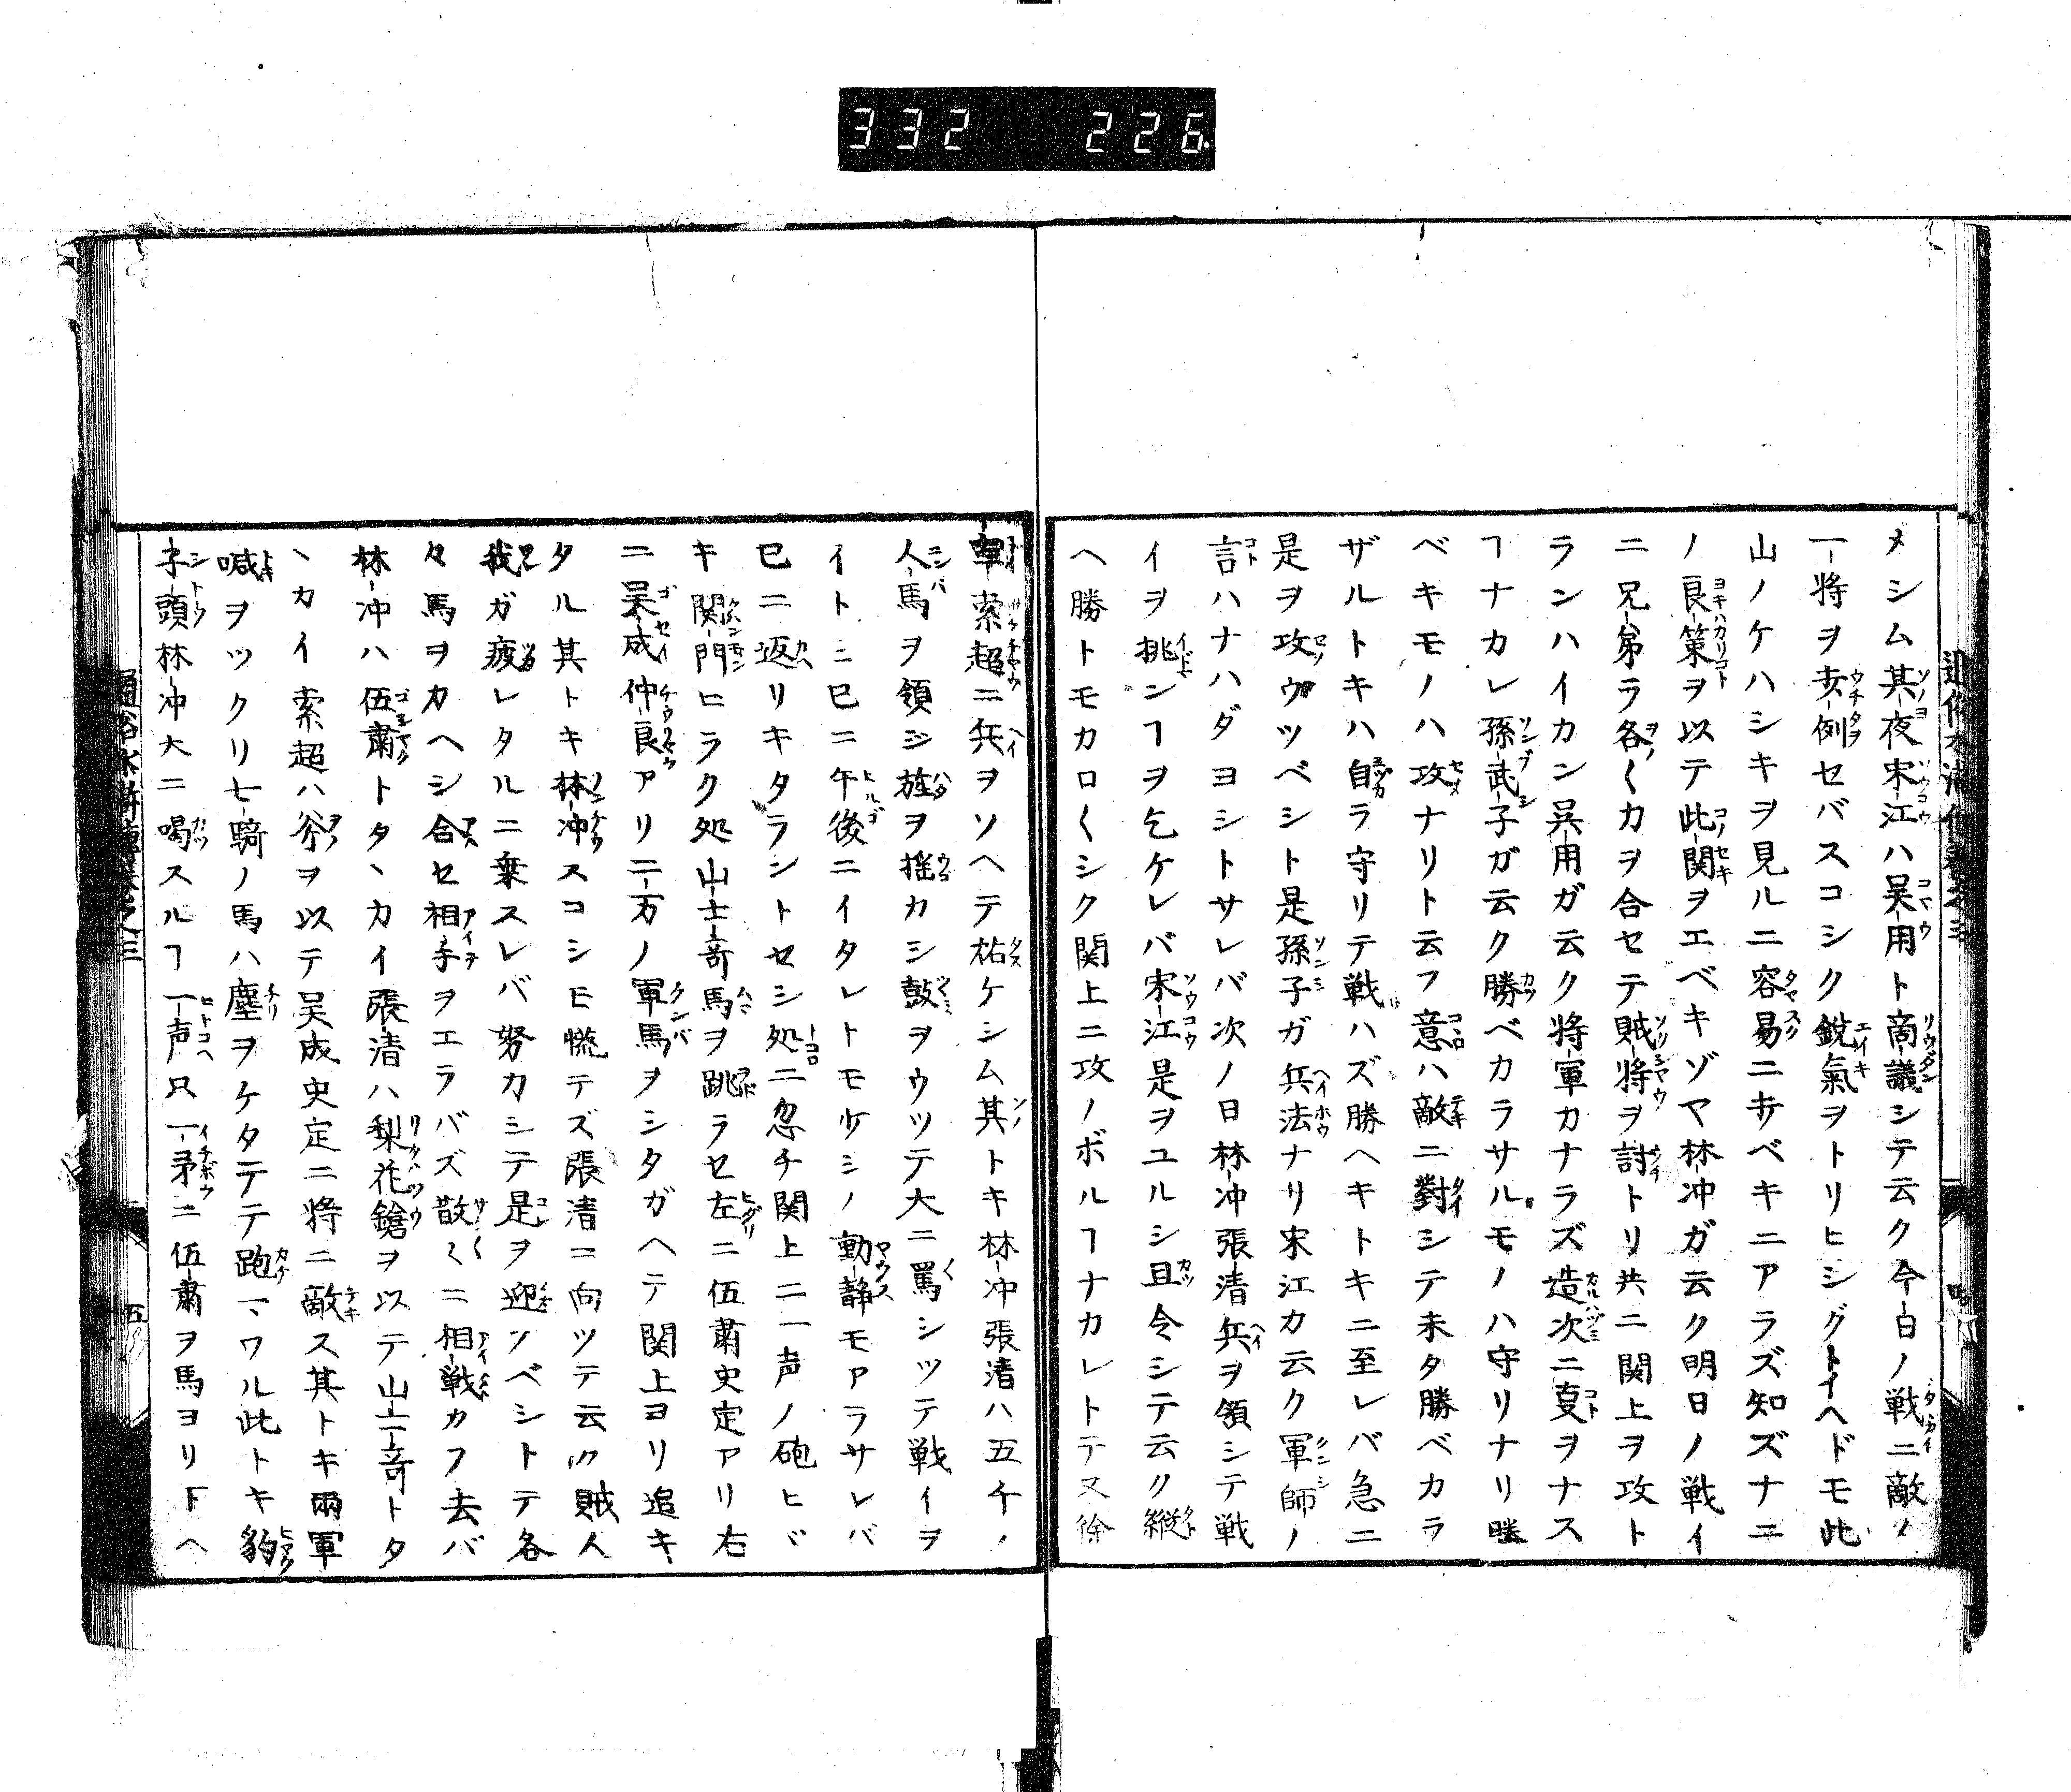 332 226
メシム其夜宋江ハ吴用ト商議シテ云ク今日ノ戦ニ敵ノ
一将ヲ損例セバスコシク鋭氣ヲトリヒシグトイヘドモ此
山ノケハシキヲ見ルニ容易ニ走ベキニアラズ知ズナニ
ノ良策ヲ以テ此関ヲエベキゾヤ林冲ガ云ク明日ノ戦イ
ニ兄弟ラ各〱力ヲ合セテ賊将ヲ討トリ共ニ関上ヲ攻ト
ランハイカン吴用ガ云ク将軍カナラズ造次ニ叓ヲナス
ヿナカレ孫武子ガ云ク勝ベカラサルモノハ守リナリ勝
ベキモノハ攻ナリト云フ意ハ敵ニ對シテ未タ勝ベカラ
ザルトキハ自ラ守リテ戦ハズ勝ヘキトキニ至レバ急ニ
是ヲ攻ウツベシト是孫子ガ兵法ナリ宋江カ云ク軍師ノ
言ハナハダヨシトサレバ次ノ日林冲張清兵ヲ領シテ戦
イヲ挑ンヿヲ乞ケレバ宋江是ヲユルシ且令シテ云ク縦
ヘ勝トモカロ〱シク関上ニ攻ノボルヿナカレトテ又徐
寧索超ニ兵ヲソヘテ祐ケシム其トキ林冲張清ハ五千ノ
人馬ヲ領シ旌ヲ揺カシ鼓ヲウツテ大ニ罵シツテ戦イヲ
イトミ巳ニ午後ニイタレトモ少シノ動静モアラサレバ
巳ニ返リキタラントセシ処ニ忽チ関上ニ一声ノ砲ヒヾ
キ関門ヒラク処山士奇馬ヲ跳ラセ左ニ伍肅史定アリ右
ニ吴成仲良アリ二万ノ軍馬ヲシタガヘテ関上ヨリ追キ
タル其トキ林冲スコシモ慌テズ張清ニ向ツテ云ク賊人
我ガ疲レタルニ乗スレバ努カシテ是ヲ迎ソベシトテ各
々馬ヲカヘシ合セ相手ヲエラバズ散〱ニ相戦カフ去バ
林冲ハ伍肅トタヽカイ張清ハ梨花鎗ヲ以テ山士奇トタ
ヽカイ索超ハ斧ヲ以テ吴成史定ニ将ニ敵ス其トキ兩軍
喊ヲツクリ七騎ノ馬ハ塵ヲケタテテ跑マワル此トキ豹
子頭林冲大ニ喝スルヿ一声只一矛ニ伍肅ヲ馬ヨリ下ヘ
通俗水滸傳巻之三 五